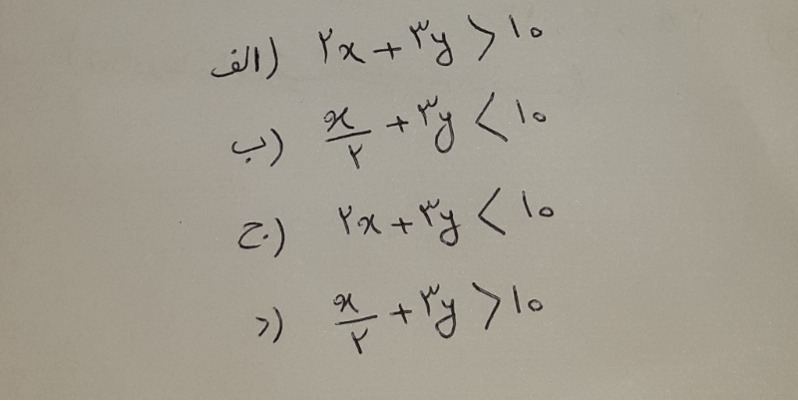 الف) ۲x + ۳y > ۱۰
ب) x/۲ + ۳y < ۱۰
ج) ۲x + ۳y < ۱۰
د) x/۲ + ۳y > ۱۰